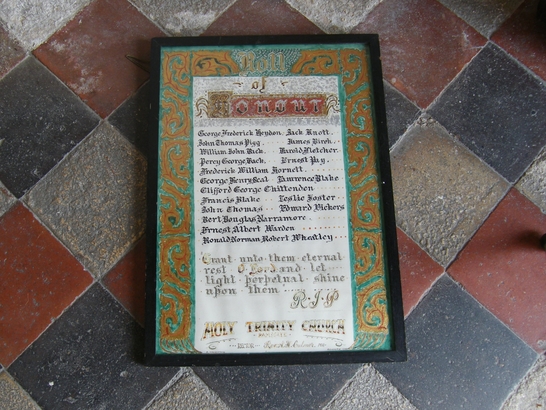 Roll
of
Honour
George Frederick Heydon. Jack Knott.
John Thomas Pigg. James Birch.
William John Hack. Harold Fletcher.
Percy George Hack. Ernest Pye.
Frederick William Hornett
George Henry Seal Lawrence Blake
Clifford George Chittenden
Francis Blake Leslie Foster
John Thomas Edward Vickers
Bert Douglas Narramore
Ernest Albert Warden
Ronald Norman Robert Wheatley
Grant unto them eternal
rest O Lord and let
light perpetual shine
upon them
R.I.P
HOLY TRINITY CHURCH